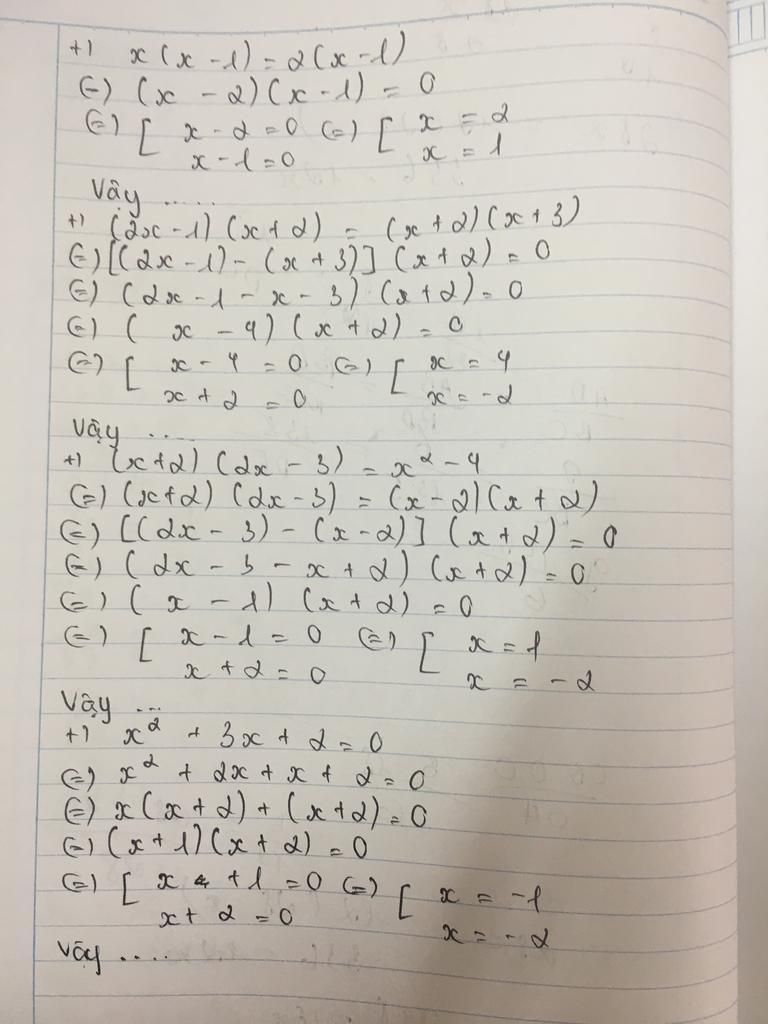 +) x(x-1)=2(x-1)
(=) (x - 2)(x-1) = 0
(=) [ x-2=0 (=) [ x = 2
x-1=0 x = 1
Vậy .....
+) (2x-1)(x+2) = (x+2)(x+3)
(=) [(2x-1)-(x+3)](x+2)=0
(=) (2x-1-x-3)(x+2)=0
(=) ( x-4)(x+2)=0
(=) [ x-4 = 0 (=) [ x = 4
x+2 = 0 x=-2
Vậy ....
+) (x+2)(2x-3)=x²-4
(=) (x+2)(2x-3)=(x-2)(x+2)
(=) [(2x-3)-(x-2)](x+2)=0
(=) (2x-3-x+2)(x+2)=0
(=) ( x-1)(x+2)=0
(=) [ x-1=0 (=) [ x=1
x+2=0 x = -2
Vậy ...
+) x² + 3x+2=0
(=) x² + 2x+x+2=0
(=) x(x+2)+(x+2)=0
(=) (x+1)(x+2)=0
(=) [ x +1=0 (=) [ x = -1
x+2=0 x=-2
Vậy ....